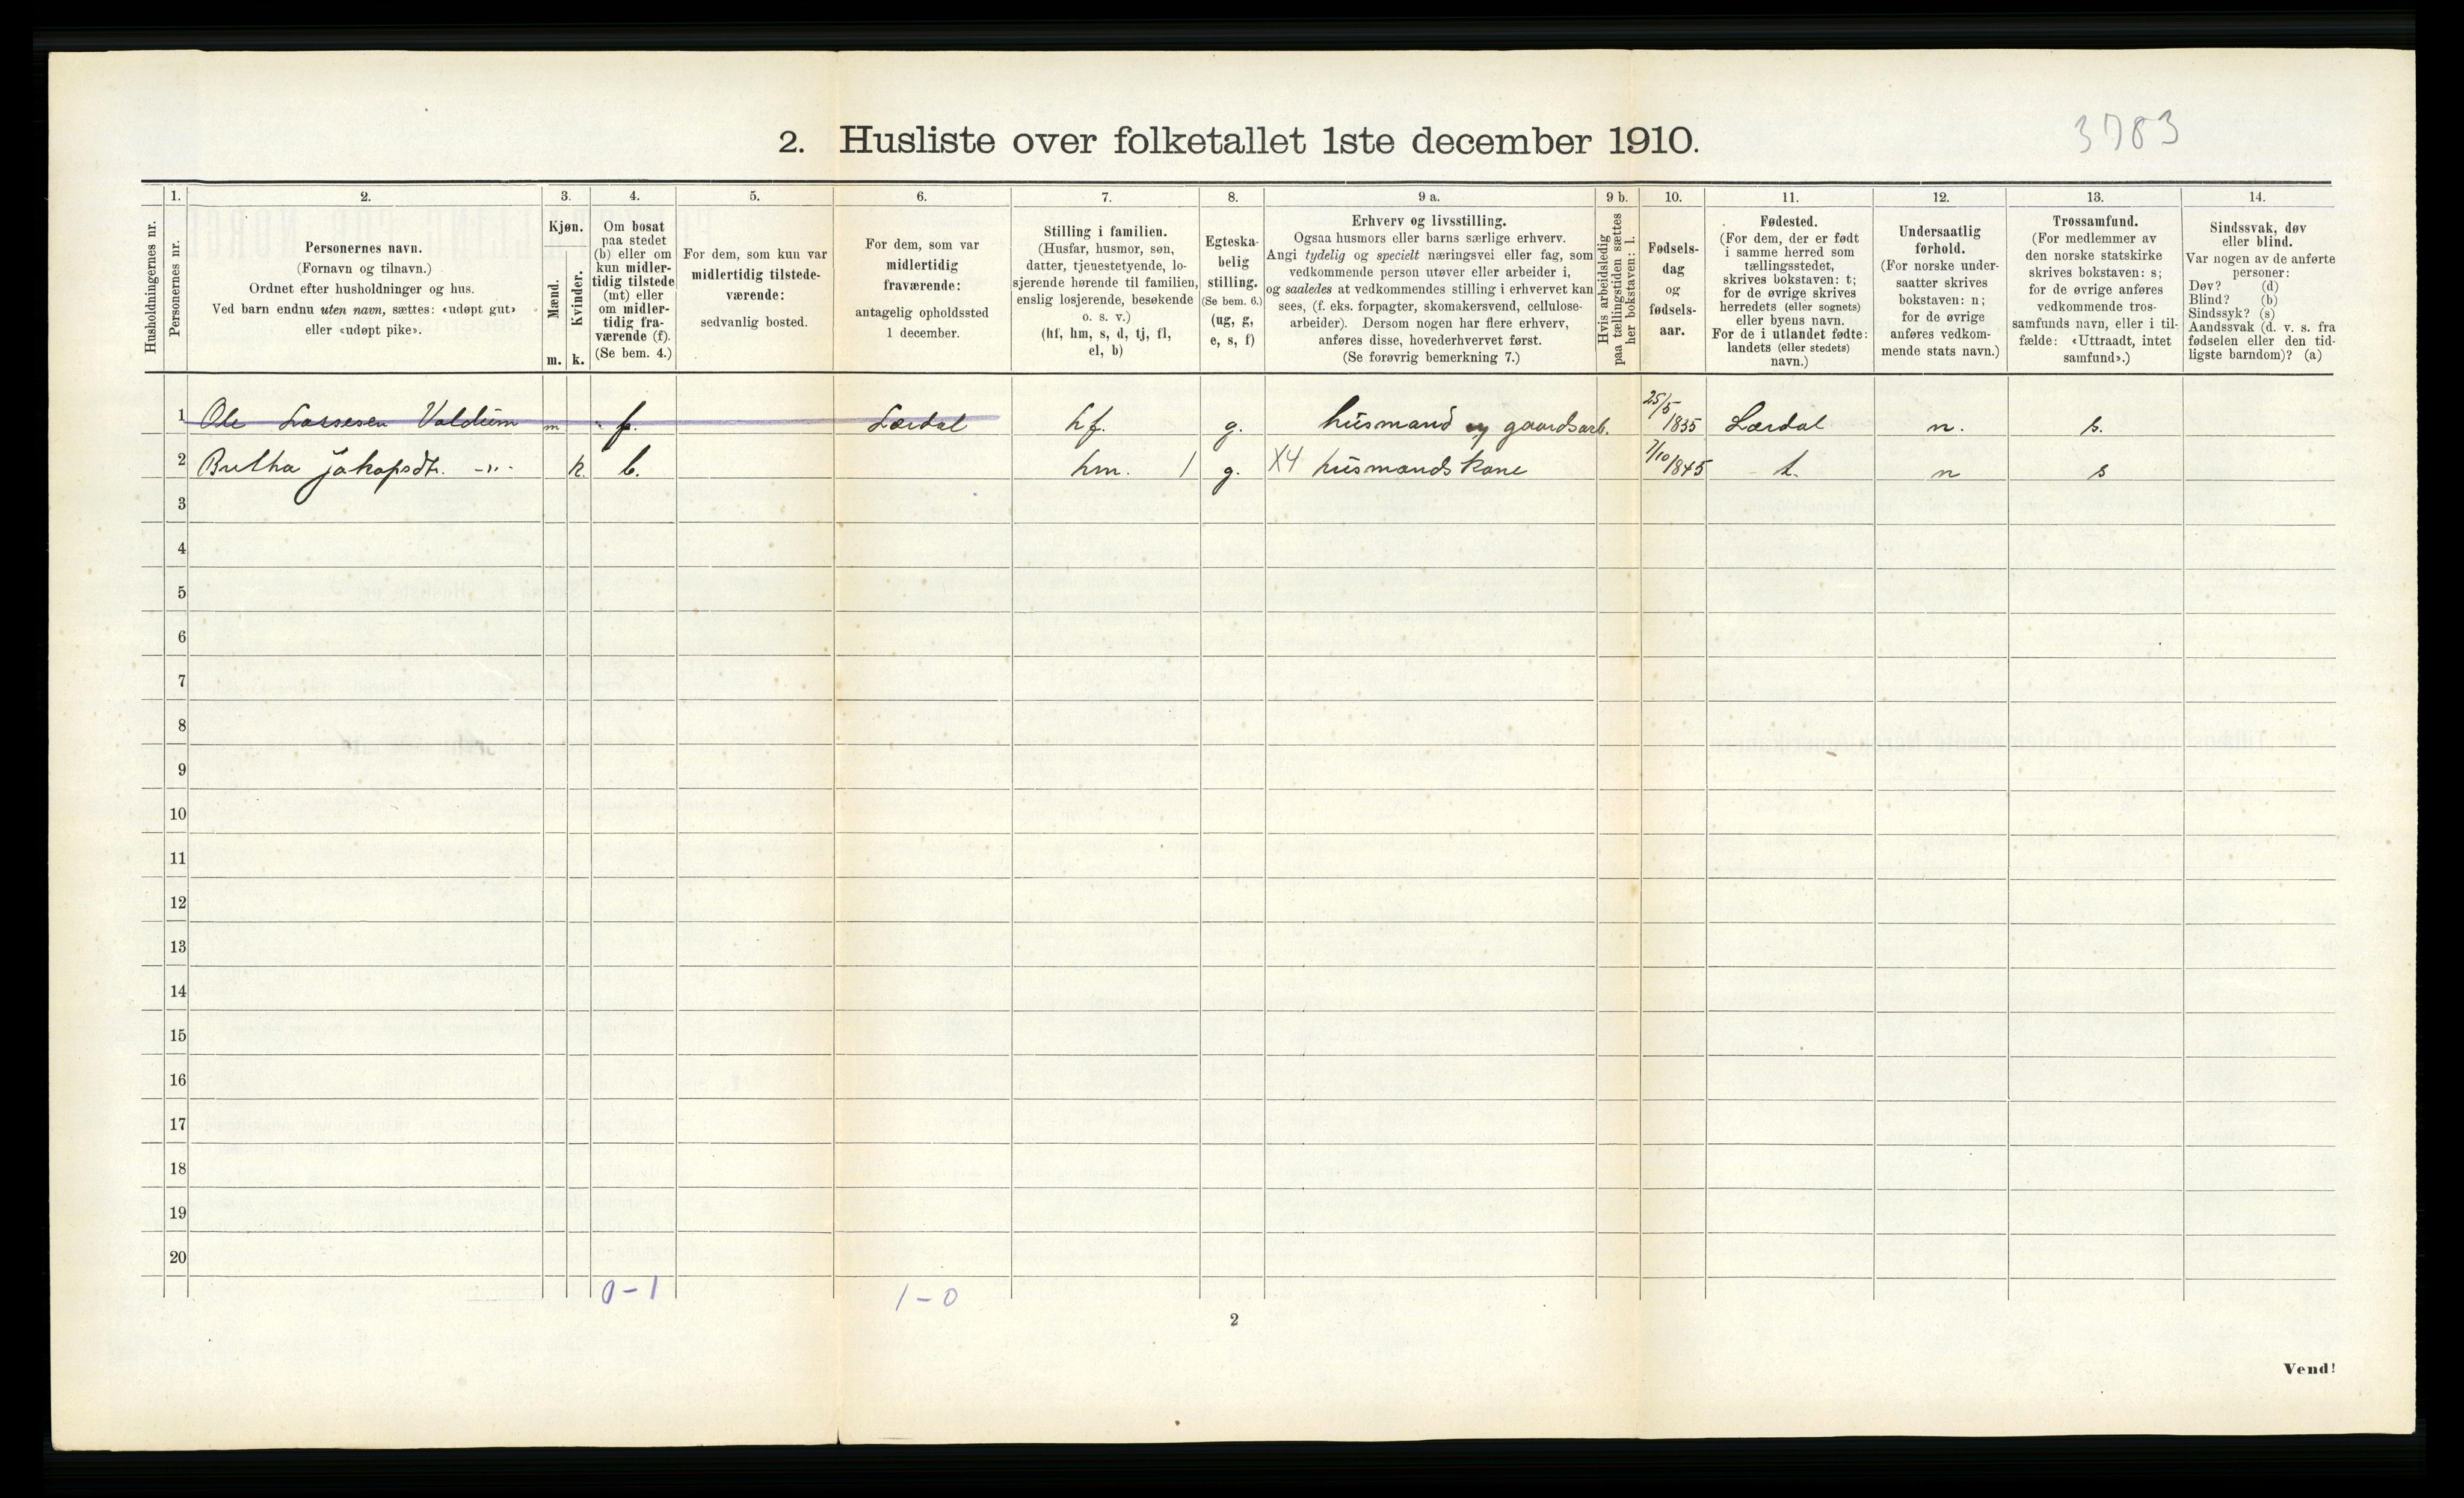 3783
2. Husliste over folketallet 1ste december 1910.
Husholdningernes nr.
1. Personernes nr.
2. Personernes navn.
(Fornavn og tilnavn.)
Ordnet efter husholdninger og hus.
Ved barn endnu uten navn, sættes: «udøpt gut»
eller «udøpt pike».
3. Kjøn.
Mænd. m.
Kvinder. k.
4. Om bosat
paa stedet
(b) eller om
kun midler-
tidig tilstede
(mt) eller
om midler-
tidig fra-
værende (f).
(Se bem. 4.)
5. For dem, som kun var
midlertidig tilstede-
værende:
sedvanlig bosted.
6. For dem, som var
midlertidig
fraværende:
antagelig opholdssted
1 december.
7. Stilling i familien.
(Husfar, husmor, søn,
datter, tjenestetyende, lo-
sjerende hørende til familien,
enslig losjerende, besøkende
o. s. v.)
(hf, hm, s, d, tj, fl,
el, b)
8. Egteska-
belig
stilling.
(Se bem. 6.)
(ug, g,
e, s, f)
9 a. Erhverv og livsstilling.
Ogsaa husmors eller barns særlige erhverv.
Angi tydelig og specielt næringsvei eller fag, som
vedkommende person utøver eller arbeider i,
og saaledes at vedkommendes stilling i erhvervet kan
sees, (f. eks. forpagter, skomakersvend, cellulose-
arbeider). Dersom nogen har flere erhverv,
anføres disse, hovederhvervet først.
(Se forøvrig bemerkning 7.)
9 b. Hvis arbeidsledig
paa tællingstiden sættes
her bokstaven: l.
10. Fødsels-
dag
og
fødsels-
aar.
11. Fødested.
(For dem, der er født
i samme herred som
tællingsstedet,
skrives bokstaven: t;
for de øvrige skrives
herredets (eller sognets)
eller byens navn.
For de i utlandet fødte:
landets (eller stedets)
navn.)
12. Undersaatlig
forhold.
(For norske under-
saatter skrives
bokstaven: n;
for de øvrige
anføres vedkom-
mende stats navn.)
13. Trossamfund.
(For medlemmer av
den norske statskirke
skrives bokstaven: s;
for de øvrige anføres
vedkommende tros-
samfunds navn, eller i til-
fælde: «Uttraadt, intet
samfund».)
14. Sindssvak, døv
eller blind.
Var nogen av de anførte
personer:
Døv? (d)
Blind? (b)
Sindssyk? (s)
Aandssvak (d. v. s. fra
fødselen eller den tid-
ligste barndom)? (a)
1 Ole Lassesen Voldum m f. Lærdal hf. g. husmand og gaardsarb. 25/5 1835 Lærdal n. s.
2 Britha Jakopsdtr. -"- k. b. hm. 1 g. X4 husmandskone 7/10 1845 t. n s
3
4
5
6
7
8
9
10
11
12
13
14
15
16
17
18
19
20
0-1 1-0
2
Vend!